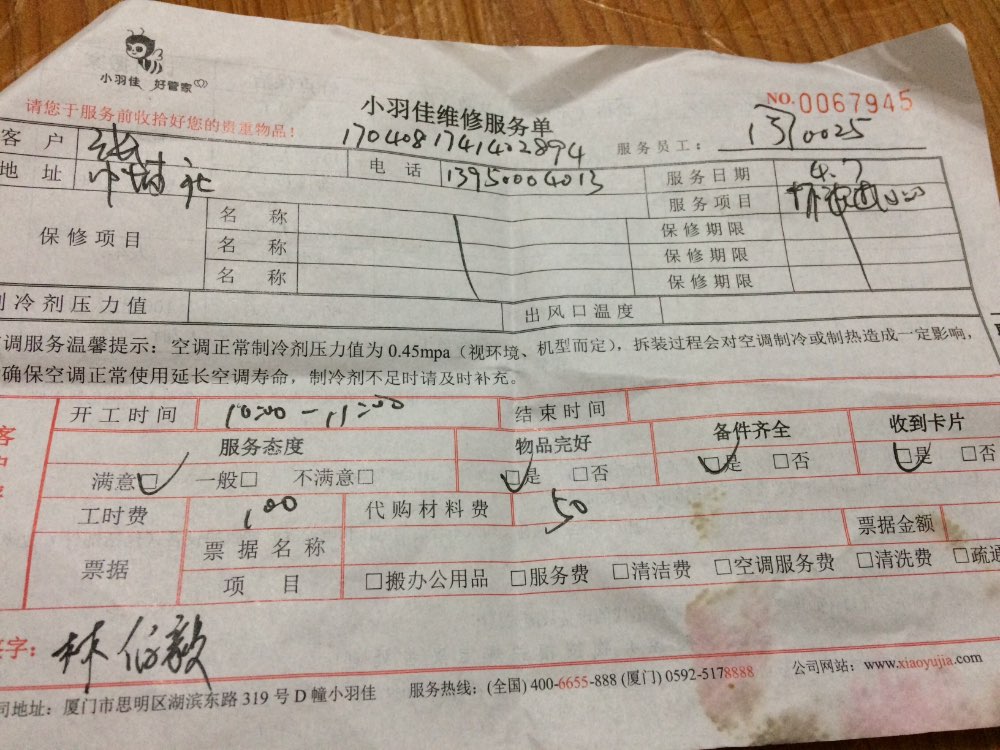 小羽佳 好管家
请您于服务前收拾好您的贵重物品!
小羽佳维修服务单
NO.0067945
170408174140 2894
服务员工: 1370025
客 户
地 址 电 话 13950004013 服务日期 4.7
服务项目
保修项目 名 称 保修期限
名 称 保修期限
名 称 保修期限
冷剂压力值 出风口温度
调服务温馨提示: 空调正常制冷剂压力值为 0.45mpa（视环境、机型而定），拆装过程会对空调制冷或制热造成一定影响，
确保空调正常使用延长空调寿命，制冷剂不足时请及时补充。
开工时间 10:00-11:00 结束时间
服务态度 物品完好 备件齐全 收到卡片
满意□ 一般□ 不满意□ □是 □否 □是 □否 □是 □否
工时费 100 代购材料费 50
票据 票据名称 票据金额
项 目 □搬办公用品 □服务费 □清洁费 □空调服务费 □清洗费 □疏通
字: 林
司地址: 厦门市思明区湖滨东路 319 号 D 幢小羽佳 服务热线: (全国) 400-6655-888 (厦门) 0592-5178888 公司网站: www.xiaoyujia.com